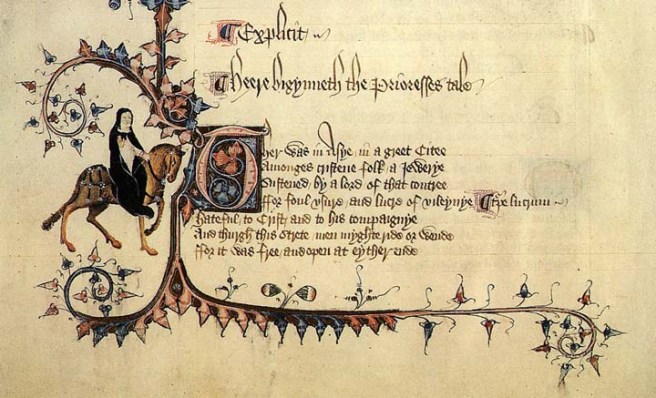 Explicit
Heere bigynneth the Prioresses tale
Ther was in Asye in a greet Citee
Amonges cristene folk a Jewerye
Sustened by a lord of that contree
ffor foul vsure and lucre of vileynye
Hateful to Crist and to his compaignye
And thurgh this Strete men myghte ride or wende
ffor it was free and open at eyther ende